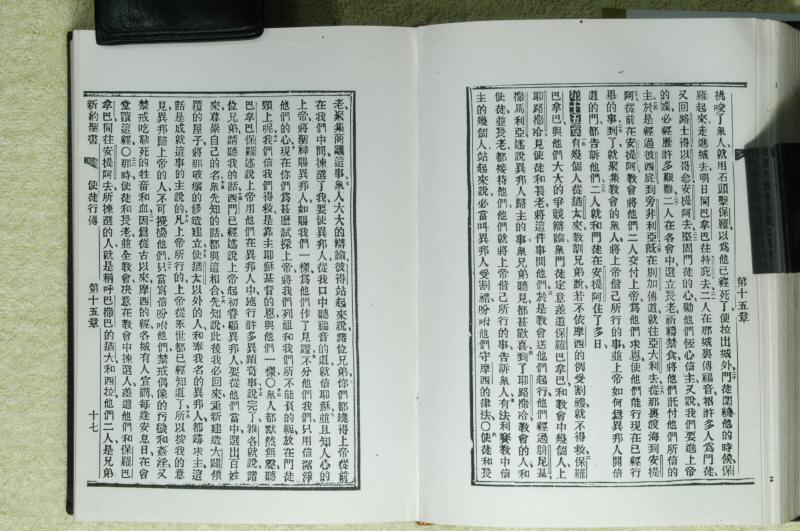 挑唆了衆人、就用石頭擊保羅以爲他已經死了、便拉出城外、門徒圍繞他的時候、保
羅起來走進城去、明日同巴拿巴往特庇去、二人在那城裏傳福音、招許多人爲門徒、
又回路士得以哥念安提阿去、堅固門徒的心、勸他們恆心信主、又說我們要進上帝
的國、必經歷許多艱難、二人在各會中選立長老、祈禱禁食、將他們託付他們所信的
主、於是經過彼西底、到旁非利亞、旣在別加傳道、就往亞大利去、從那裏渡海到安提
阿、從前在安提阿教會、將他們二人交付上帝、爲他們求恩、使他們能行現在已經行
畢的事、到了就聚集教會的衆人、將上帝偕己所行的事、並上帝如何爲異邦人開信
道的門、都告訴他們、二人就和門徒在安提阿住了多日、
第十五章 有幾個人從猶太來教訓兄弟說、若不依摩西的例受割禮、就不得救、保羅
巴拿巴與他們大大的爭競辯論、衆門徒定意差遣保羅巴拿巴、和教會中幾個人、上
耶路撒冷見使徒和長老、將這件事問他們、於是教會送他們起行、他們經過腓尼基
撒馬利亞、述說異邦人歸主的事、衆兄弟聽見都甚歡喜、到了耶路撒冷、教會的人和
使徒並長老都接待他們、他們就將上帝偕己所行的事、告訴衆人、有法利賽教中信
主的幾個人、站起來說、必當叫異邦人受割禮、吩咐他們守摩西的律法○使徒和長
第十五章
老聚集商議這事、衆人大大的辯論、彼得站起來說、諸位兄弟、你們都曉得上帝從前
在我們中間揀選了我、要使異邦人從我口中聽福音的道、就信耶穌、並且知人心的
上帝將聖神賜異邦人如賜我們一樣、爲他們作了見證、不分他們我們、只用信潔淨
他們的心、現在你們爲甚麼試探上帝、將我們列祖和我們所不能負的軛、放在門徒
頸上呢、我們信我們得救是靠主耶穌基督的恩、與他們一樣○衆人都默然無聲、聽
巴拿巴保羅述說上帝用他們在異邦人中施行許多異蹟奇事、說完了、雅各就說、諸
位兄弟、請聽我的話、西門已經述說上帝起初眷顧異邦人、要從他們當中選出百姓
來、尊崇自己的名、衆先知的話、都與這相合、先知說、此後我必回來、重新建造大闢傾
覆的屋子、將那破壞的修造建立、使猶太以外的人、和奉我名的異邦人、都尋求主、這
話是成就這事的主說的、凡上帝所行的、上帝從永世都已經知道了、所以按我的意
見、異邦歸上帝的人、不可擾擾他們、只當寫信吩咐他們、禁戒偶像的汚穢和姦淫、又
禁戒吃勒死的牲畜和血、因爲從古以來、摩西的經、各城有人宣講、每逢安息日、在會
堂讀這經○那時使徒和長老、並全教會、決意在教會中揀選人、差遣他們和保羅巴
拿巴同往安提阿去、所揀選的人、就是稱呼巴撒巴的猶大和西拉、他們二人是兄弟
新約聖書 使徒行傳 第十五章 十七